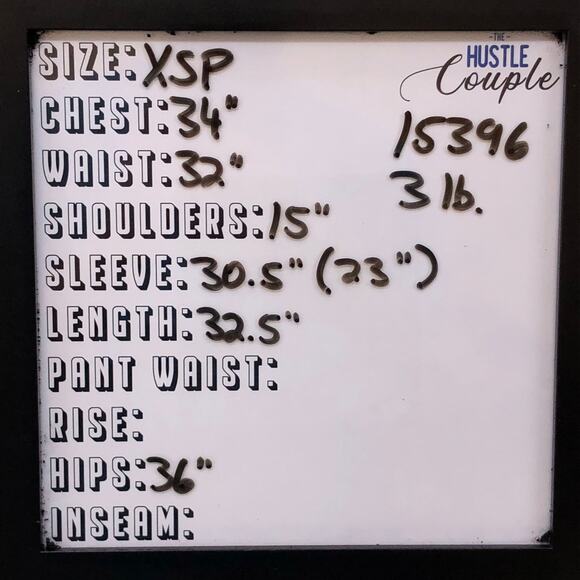 -THE-
HUSTLE
Couple
SIZE: XSP
CHEST: 34"
WAIST: 32"
SHOULDERS: 15"
SLEEVE: 30.5" (23")
LENGTH: 32.5"
PANT WAIST:
RISE:
HIPS: 36"
INSEAM:
15396
3 lb.